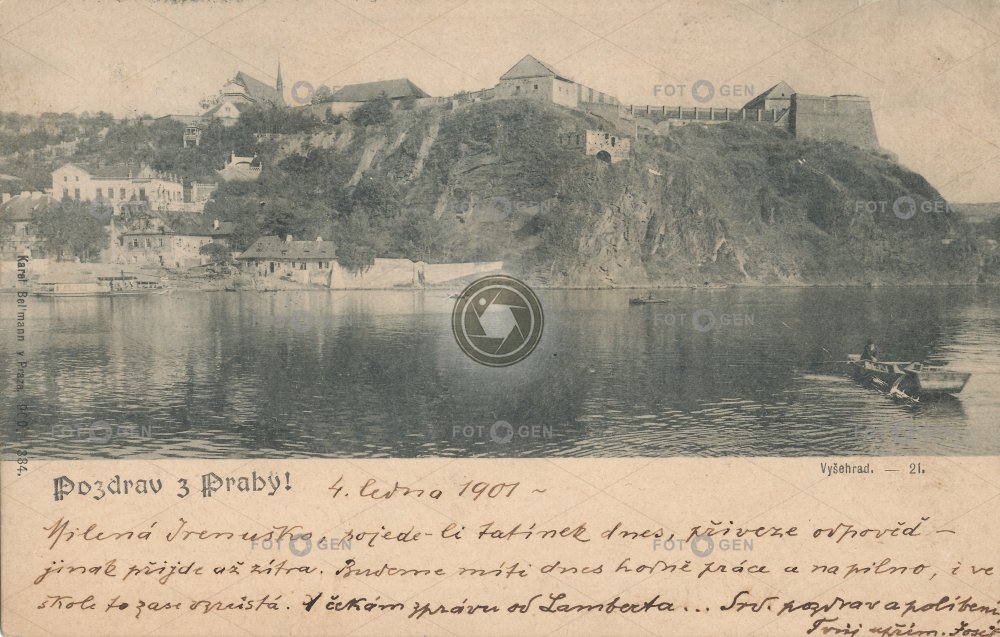 FOTOGEN
Karel Bellmann v Praze.
Vyšehrad. — 21.
Pozdrav z Prahy!
4. ledna 1901 –
Milená Irenuško, pojede-li tatínek dnes, přiveze odpověď –
jinak přijde až zítra. Budeme míti dnes hodně práce a napilno, i ve
škole to zase
čekám zprávu od Lamberta ... Srd. pozdrav a políbení
Tvůj upřím.